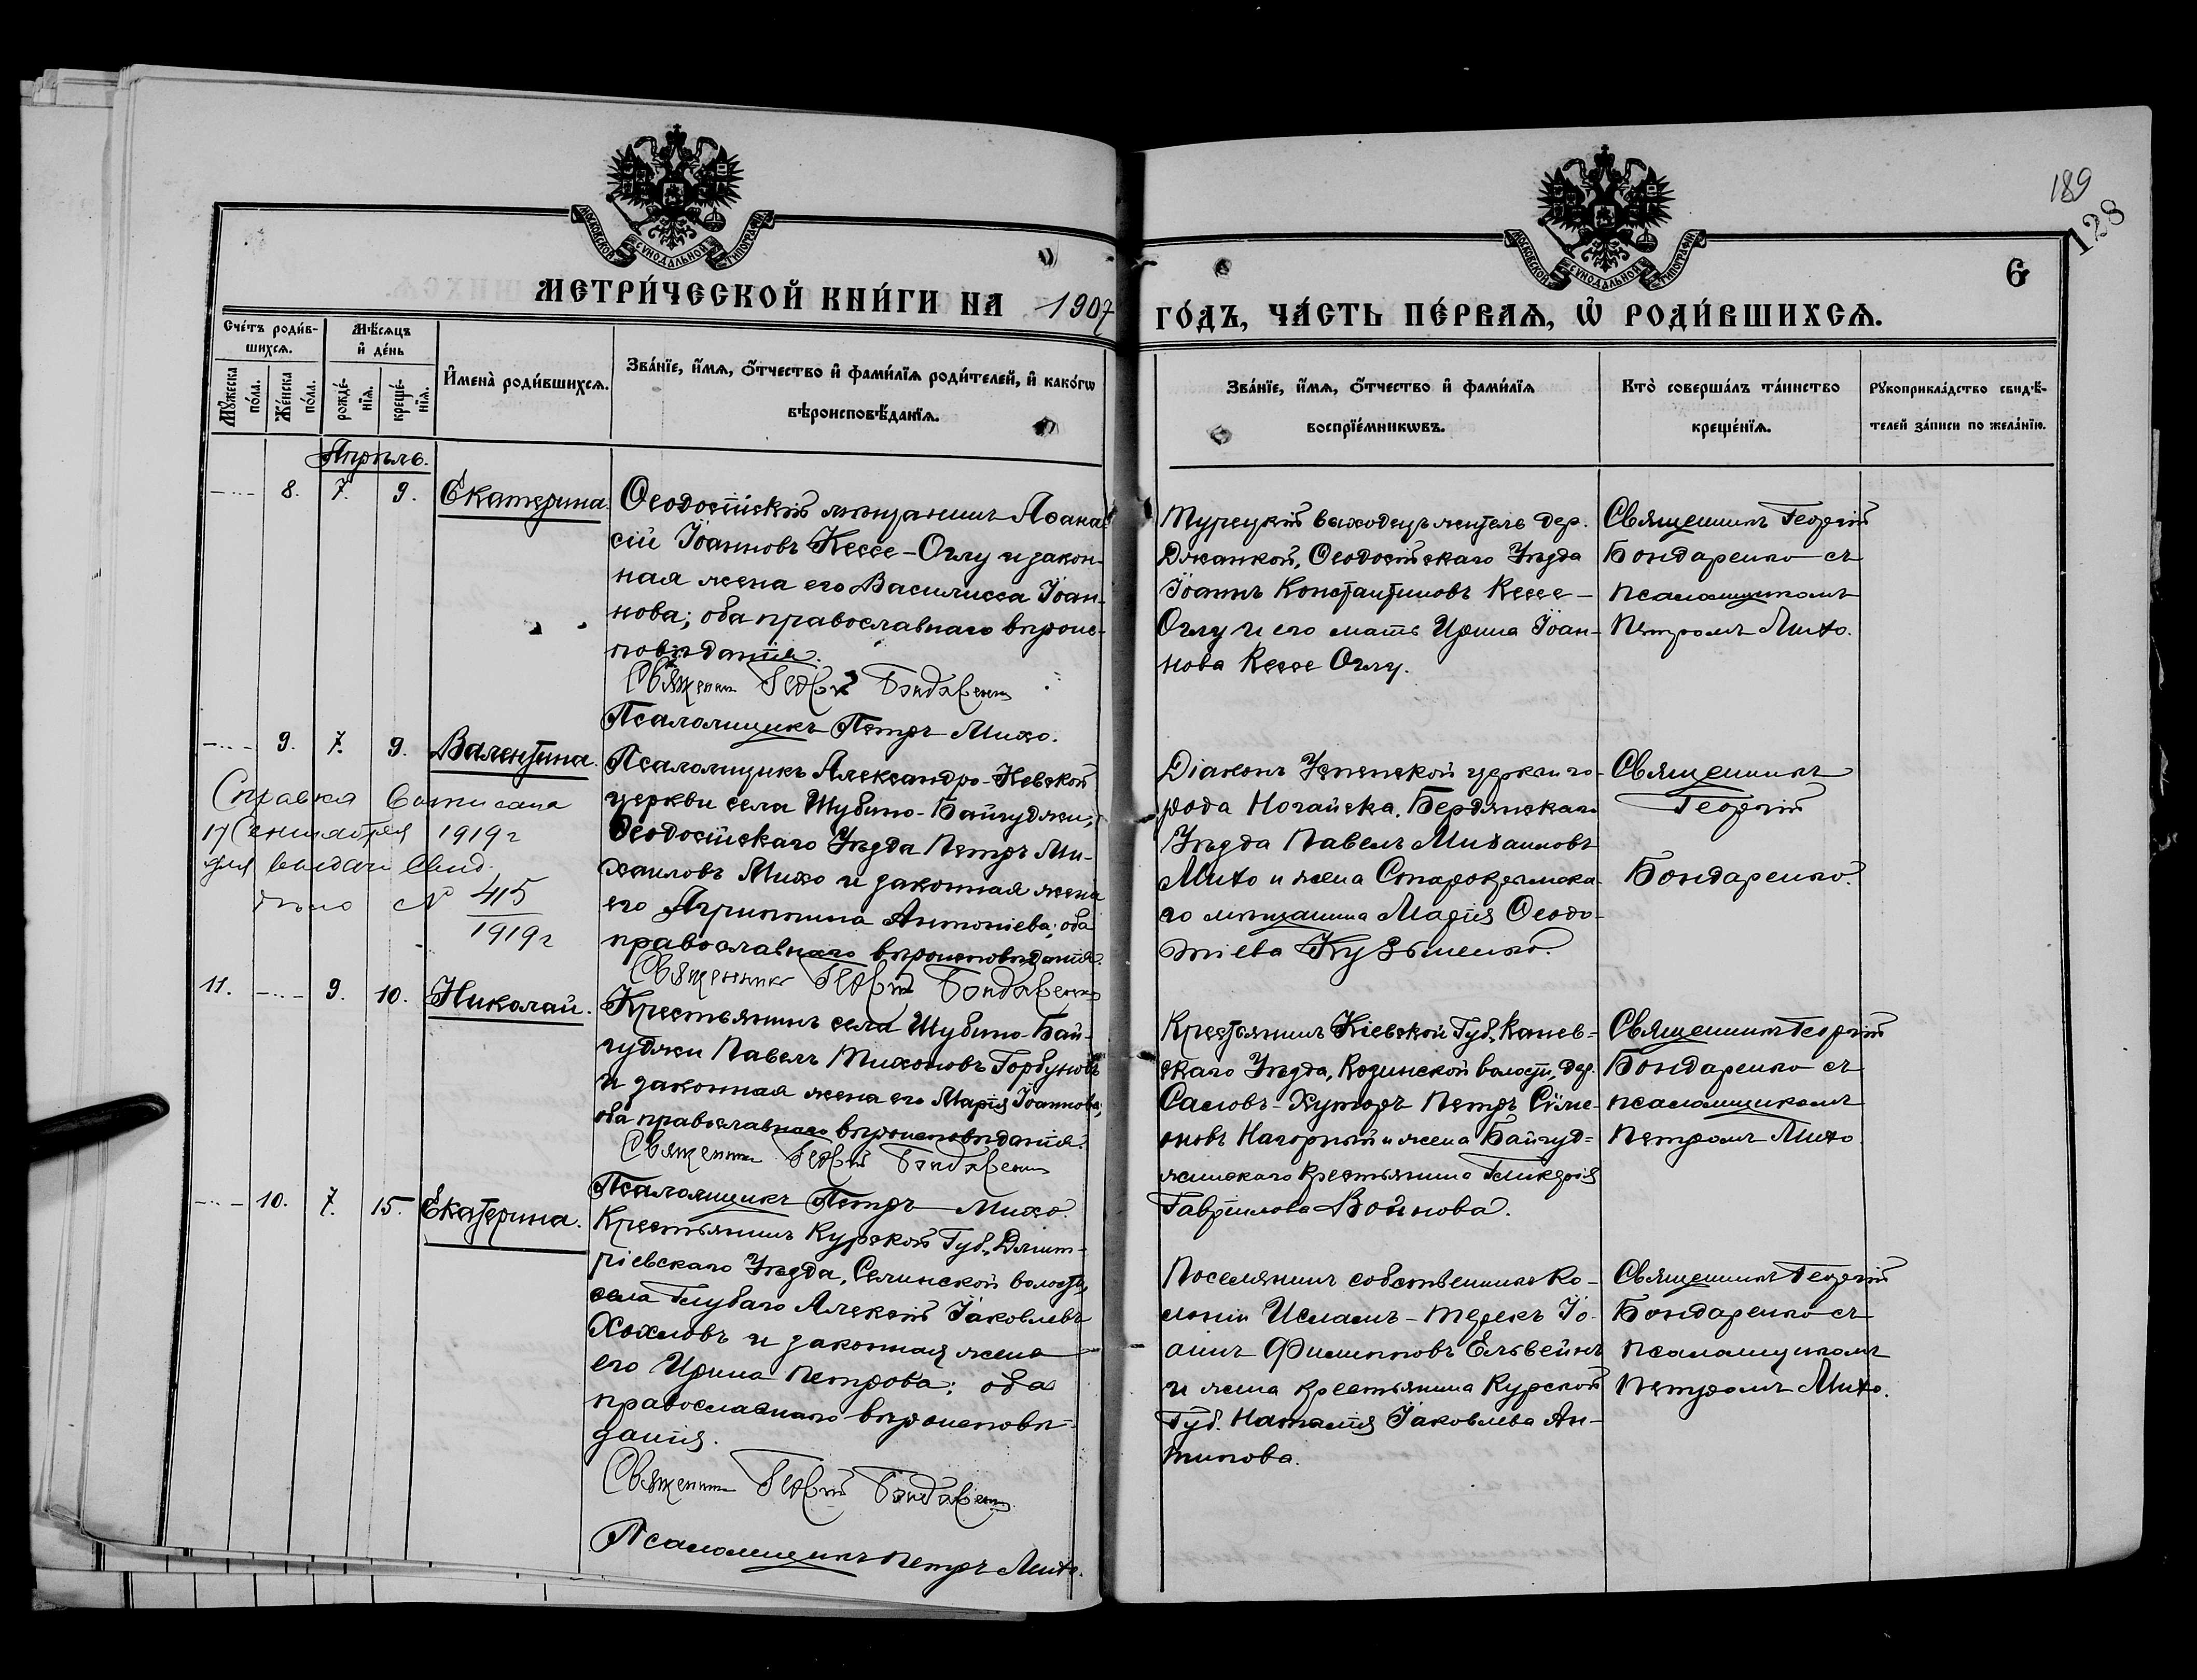 189
128
6
МОСКОВСКОЙ СУНОДАЛЬНОЙ ТИПОГРАФІИ
МОСКОВСКОЙ СУНОДАЛЬНОЙ ТИПОГРАФІИ
МЕТРИ́ЧЕСКОЙ КНИ́ГИ НА 1907
ГО́ДЪ, ЧА́СТЬ ПЕ́РВАѦ, Ѡ҆ РОДИ́ВШИХСѦ.
Сче́тъ роди́в-
шихсѧ.
Мѣ́сѧцъ
и҆ де́нь
Мꙋ́жеска
по́ла.
Же́нска
по́ла.
рожде́-
нїѧ.
креще́-
нїѧ.
И҆мена̀ роди́вшихсѧ.
Зва́нїе, и҆́мѧ, ѻ҆́тчество и҆ фами́лїѧ роди́телей, и҆ како́гѡ
вѣроисповѣ́данїѧ.
Зва́нїе, и҆́мѧ, ѻ҆́тчество и҆ фами́лїѧ
воспрїе́мникѡвъ.
Кто̀ соверша́лъ та́инство
креще́нїѧ.
Рꙋкоприкла́дство свидѣ́-
телей за́писи по жела́нїю.
Апрѣль.
8. 7. 9. Екатерина.
Ѳеодосійскій мѣщанинъ Аѳана-
сій Іоанновъ Кессе-Оглу и закон-
ная жена его Василисса Іоан-
нова; оба православнаго вѣроис-
повѣданія.
Священникъ Георгій Бондаренко
Псаломщикъ Петръ Михо.
Турецкій выходецъ житель дер.
Джанкой, Ѳеодосійскаго Уѣзда
Іоаннъ Константиновъ Кессе-
Оглу и его мать Ирина Іоан-
нова Кессе Оглу.
Священникъ Георгій
Бондаренко съ
псаломщикомъ
Петромъ Михо.
9. 7. 9. Валентина.
Справка выписана
17 Сентября 1919 г
для выдачи свид.
№ 415
1919 г
Псаломщикъ Александро-Невской
церкви села Шубино-Байгуджи,
Ѳеодосійскаго Уѣзда Петръ Ми-
хаиловъ Михо и законная жена
его Агриппина Антоніева; оба
православнаго вѣроисповѣданія.
Священникъ Георгій Бондаренко
Діаконъ Успенской церкви го-
рода Ногайска, Бердянскаго
Уѣзда Павелъ Михаиловъ
Михо и жена Старокрымска-
го мѣщанина Марія Ѳеодо-
тіева Кузьменко.
Священникъ
Георгій
Бондаренко.
11. 9. 10. Николай.
Крестьянинъ села Шубино-Бай-
гуджи Павелъ Тихоновъ Горбуновъ
и законная жена его Марія Іоаннова;
оба православнаго вѣроисповѣданія.
Священникъ Георгій Бондаренко
Псаломщикъ Петръ Михо.
Крестьянинъ Кіевской Губ, Канев-
скаго Уѣзда, Козинской волости, дер.
Саловъ-Хуторъ Петръ Сѵме-
оновъ Нагорный и жена Байгуд-
жинскаго крестьянина Гликерія
Гавріилова Войнова.
Священникъ Георгій
Бондаренко съ
псаломщикомъ
Петромъ Михо
10. 7. 15. Екатерина.
Крестьянинъ Курской Губ, Дмит-
ріевскаго Уѣзда, Селинской волости,
села Глубаго Алексій Іаковлевъ
Хохловъ и законная жена
его Ирина Петрова; оба
православнаго вѣроисповѣ-
данія.
Священникъ Георгій Бондаренко
Псаломщикъ Петръ Михо.
Поселянинъ собственникъ ко-
лоніи Исламъ-Терекъ Іо-
аннъ Филипповъ Ельвейнъ
и жена крестьянина Курской
Губ. Наталія Іаковлева Ан-
типова.
Священникъ Георгій
Бондаренко съ
псаломщикомъ
Петромъ Михо.